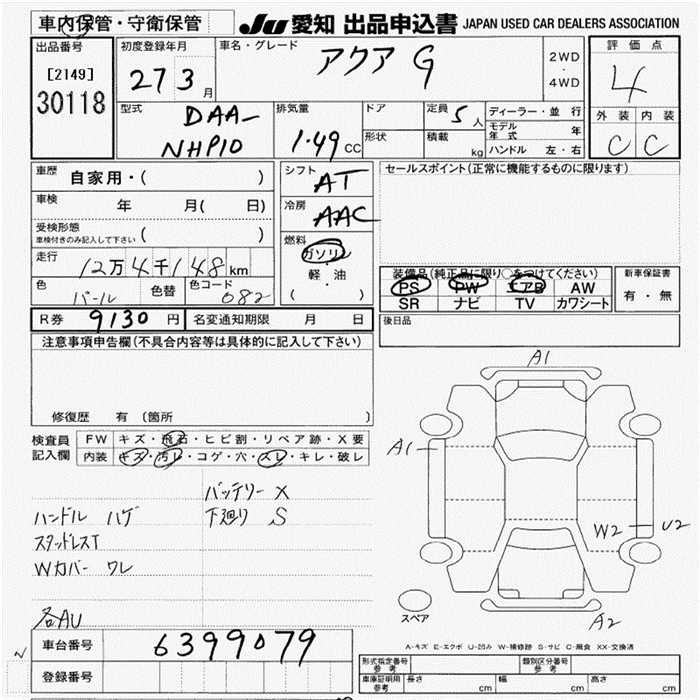 車内保管・守衛保管 JU 愛知 出品申込書 JAPAN USED CAR DEALERS ASSOCIATION
出品番号 [2149] 30118
初度登録年月 27 3 月
車名・グレード アクア G
2WD ・ 4WD
評価点 4
外装 内装
C C
型式 DAA-NHP10
排気量 1.49 CC
ドア
形状
定員 5 人
積載 kg
ディーラー・並 行
モデル年式 年
ハンドル 左・右
車歴 自家用・( )
車検 年 月( 日)
受検形態 車検付きのみ記入して下さい ( )
走行 12万4千148 km
色 パール 色替 色コード 082
シフト AT
冷房 AAC
燃料 ガソリン
軽・油
( )
セールスポイント(正常に機能するものに限ります)
装備品(純正品に限り○をつけてください)
PS PW エアB AW
SR ナビ TV カワシート
新車保証書 有・無
R券 9130 円 名変通知期限 月 日
後日品
注意事項申告欄(不具合内容等は具体的に記入して下さい)
修復歴 有 (箇所 )
検査員記入欄
FW キズ・飛石・ヒビ割・リペア跡・X要
内装 キズ・汚レ・コゲ・穴・スレ・キレ・破レ
バッテリー X
ハンドル ハゲ 下廻り S
スタッドレスT
Wカバー ワレ
各AU
A1
A1
W2 U2
A2
スペア
A-キズ E-エクボ U-凹み W-補修跡 S-サビ C-腐食 XX-交換済
N
車台番号 6399079
登録番号
形式指定番号 参考 類別区分番号 参考
車庫証明用 参考 長さ cm 幅 cm 高さ cm